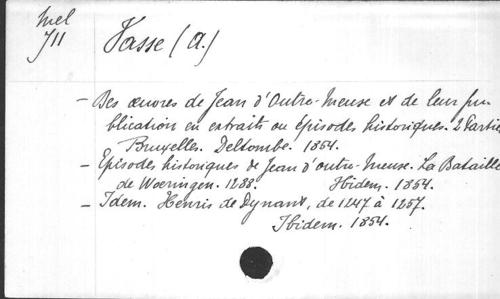 Mel
J11
Vasse (A.)
– Des œuvres de Jean d'Outre-Meuse et de leur pu-
blication en extraits ou Episodes historiques. 2 Partie
Bruxelles. Deltombe. 1854.
– Episodes historiques de Jean d'outre-Meuse. La Bataille
de Woeringen. 1288. Ibidem. 1854.
– Idem. Henris de Dynant, de 1247 à 1257.
Ibidem. 1854.